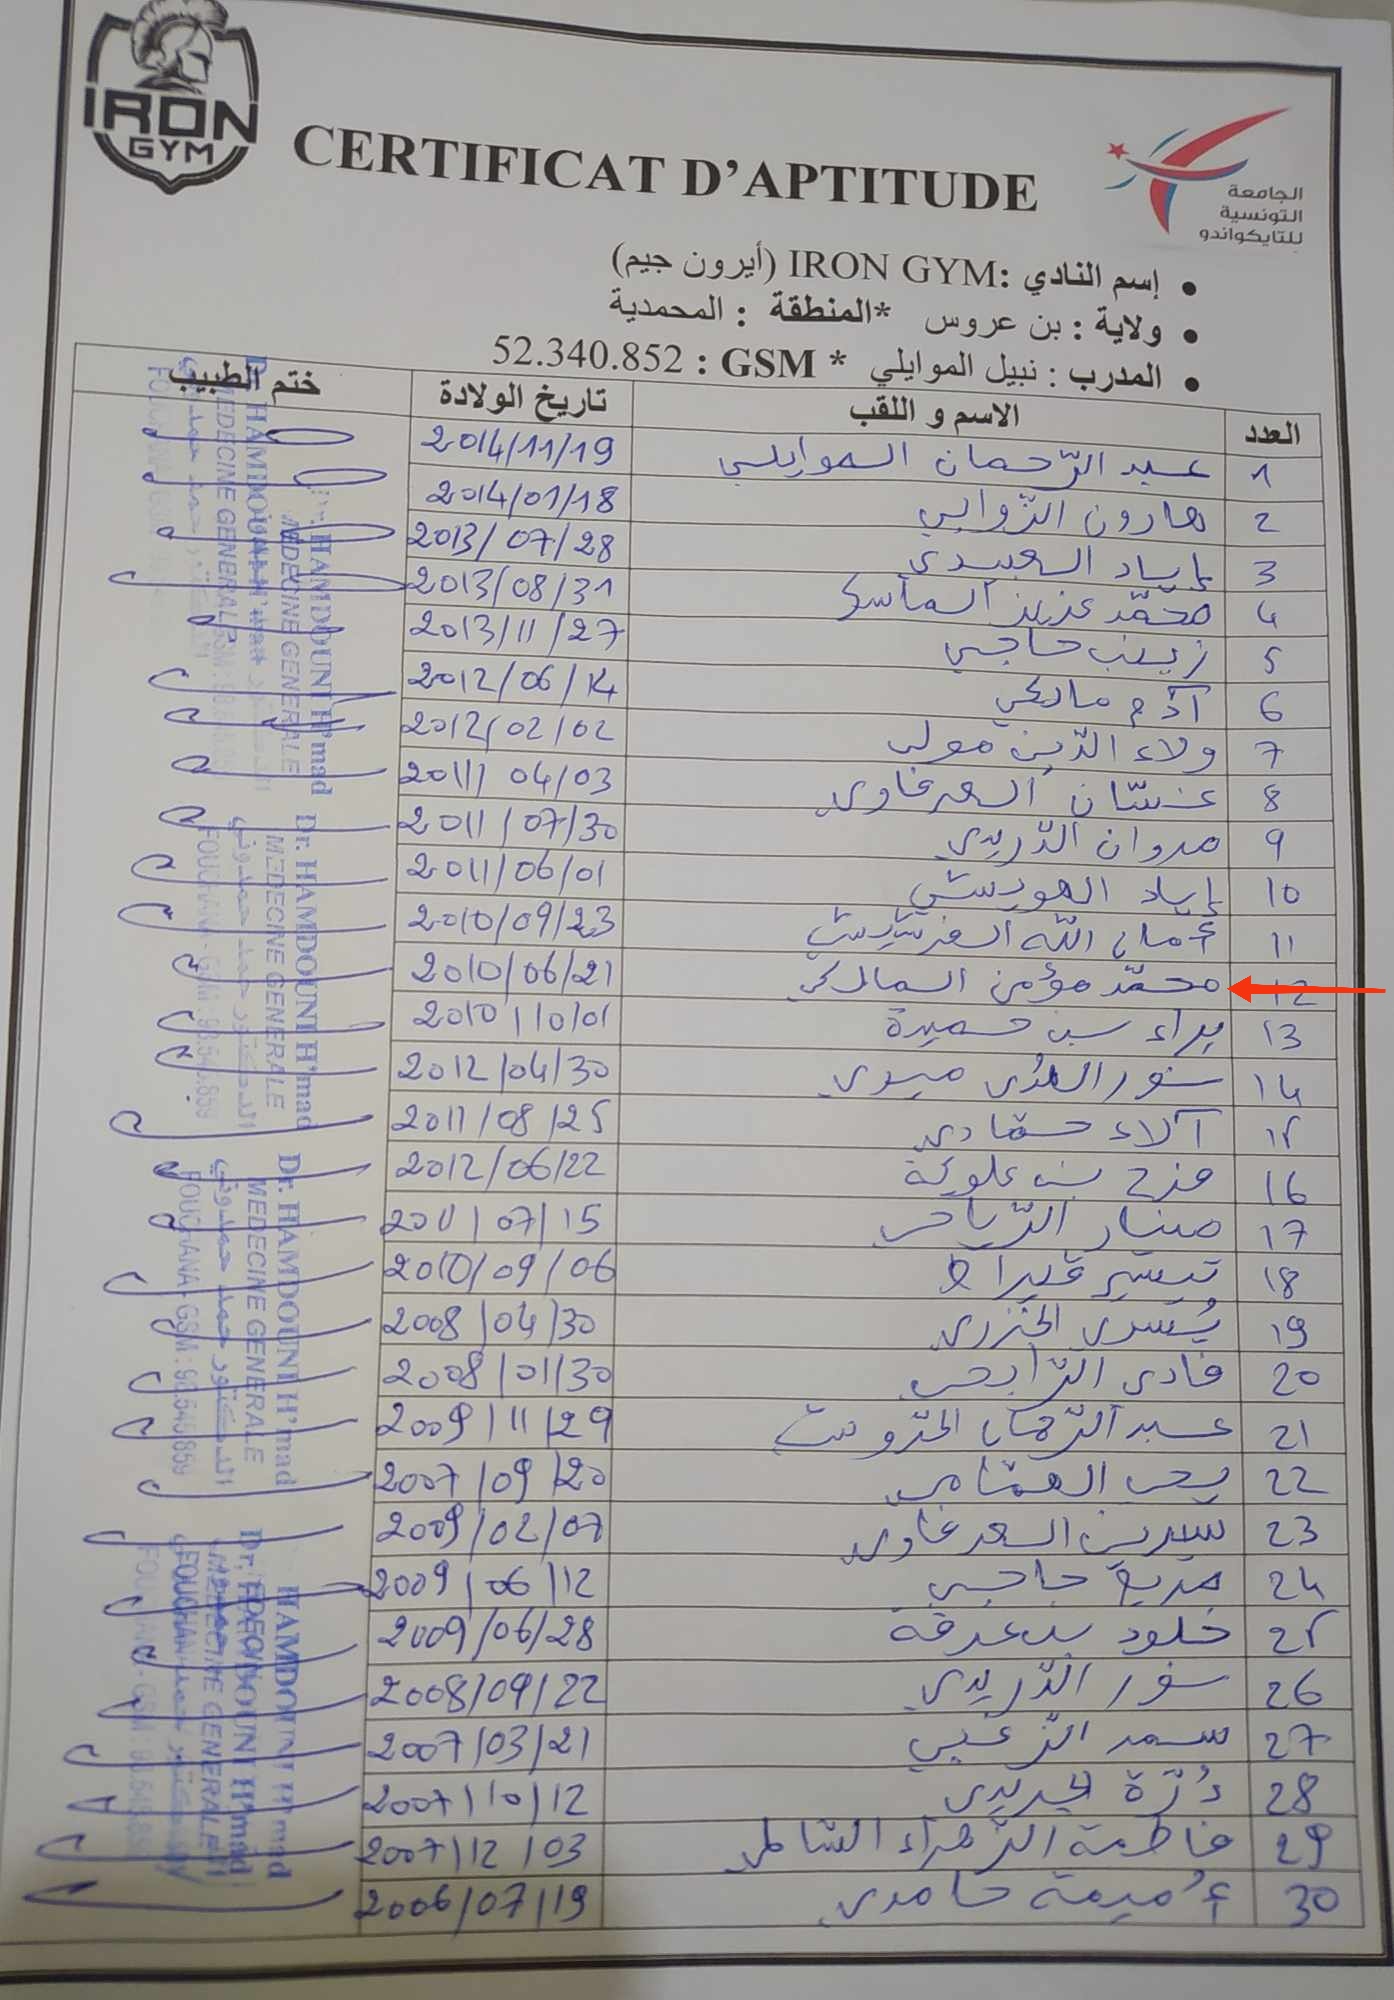 IRON
GYM
CERTIFICAT D'APTITUDE
الجامعة
التونسية
للتايكواندو
إسم النادي :IRON GYM (أيرون جيم)
ولاية : بن عروس *المنطقة : المحمدية
المدرب : نبيل الموايلي * GSM : 52.340.852
العدد الاسم و اللقب تاريخ الولادة ختم الطبيب
1 عبد الرّحمان الموايلي 2014/11/19
2 هارون الزّوابي 2014/01/18
3 إياد العبيدي 2013/07/28
4 محمّد عزيز الماسكي 2013/08/31
5 زينب حاجي 2013/11/27
6 آدم مالكي 2012/06/14
7 ولاء الدّين مولى 2012/02/02
8 غسّان العرفاوي 2011/04/03
9 مروان الدّريدي 2011/07/30
10 إياد الهويشي 2011/06/01
11 أمان الله الفرشيشي 2010/09/23
12 محمّد مؤمن المالكي 2010/06/21
13 براء بن حميدة 2010/10/01
14 نور الهدى ميري 2012/04/30
15 آلاء حمّادي 2011/08/25
16 فرح بن علوية 2012/06/22
17 منار الرّياحي 2011/07/15
18 تيسير قيراط 2010/09/06
19 يُسرى الخزري 2008/04/30
20 فادي الرّابحي 2008/01/30
21 عبد الرّحمان الخرّوبي 2009/11/29
22 يحي العثماني 2007/09/20
23 سيرين العرفاوي 2009/02/07
24 مريم حاجي 2009/06/12
25 خلود بن عرفة 2009/06/28
26 نور الدّريدي 2008/09/22
27 سمر الزغبي 2007/03/21
28 دُرّة الجريدي 2007/10/12
29 فاطمة الزّهراء الشاملي 2007/12/03
30 أُميمة حامدي 2006/07/19
Dr. HAMDOUNI H'mad
MEDECINE GENERALE
الدكتور حمد حمدوني
FOUCHANA - GSM : 98.545.859